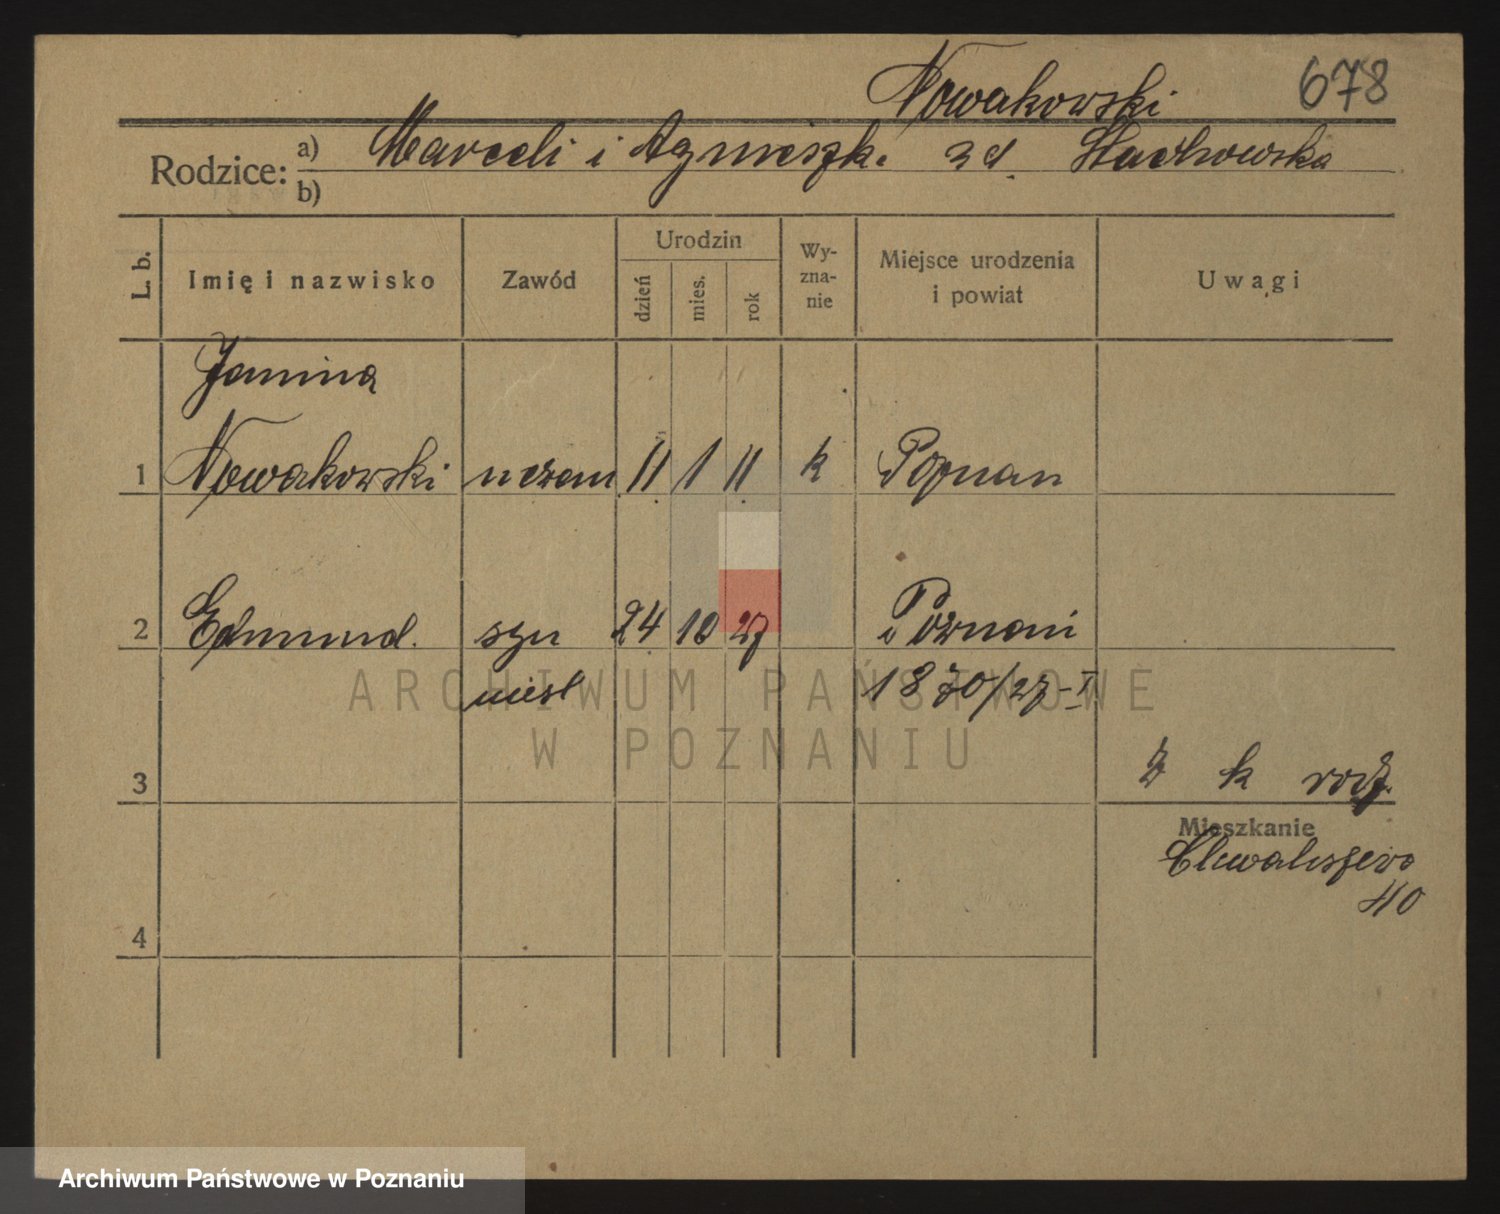 Nowakowski 678
Rodzice: a) Marceli i Agnieszk. zd. Stachowska
b)
L. b. Imię i nazwisko Zawód Urodzin dzień mies. rok Wy-zna-nie Miejsce urodzenia i powiat Uwagi
Janina
1 Nowakowski niezam 11 1 11 k Poznan
2 Edmund. syn 24 10 27 w Poznani
niesl 1870/27-I
ARCHIWUM PAŃSTWOWE
W POZNANIU
3 k rodz.
Mieszkanie
Chwaliszewo
40
4
Archiwum Państwowe w Poznaniu